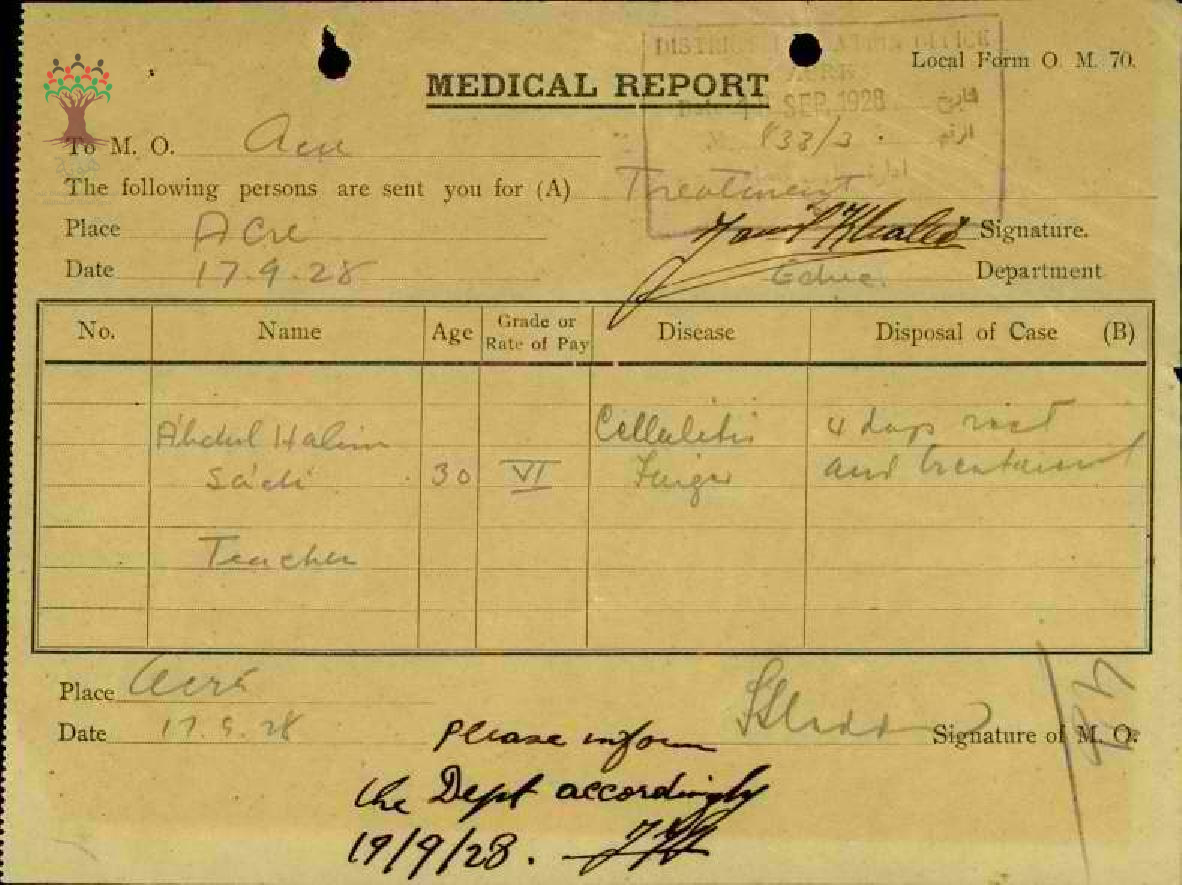 Local Form O. M. 70.
MEDICAL REPORT
DISTRICT EDUCATION OFFICE
ACRE
Date SEP. 1928 تاريخ
No. 833/3. الرقم
To M. O. Acre
The following persons are sent you for (A) Treatment
Place Acre
Signature.
Date 17.9.28
Educ. Department
No. Name Age Grade or Rate of Pay Disease Disposal of Case (B)
Abdul Halim Cellulitis 4 days rest
Sa'di 30 VI Finger and treatment
Teacher
Place Acre
Date 17.9.28
Signature of M. O.
Please inform
the Dept accordingly
19/9/28.